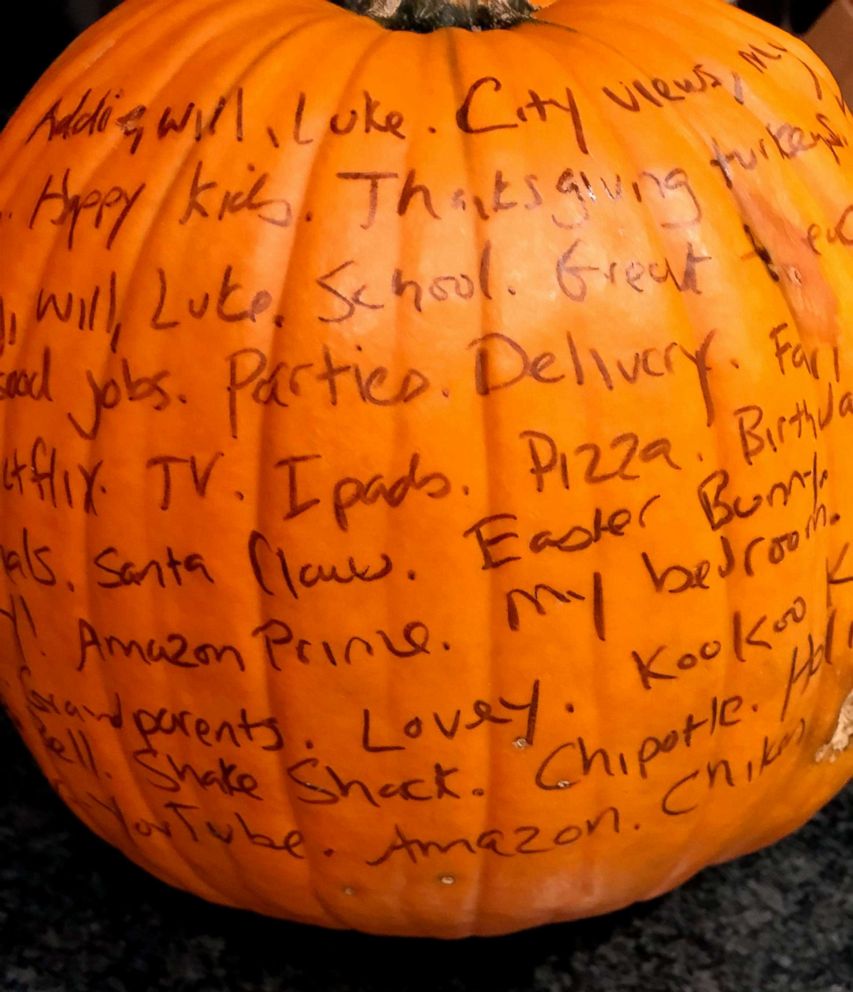 Addie, Will, Luke. City views, my
. Happy kids. Thanksgiving turkeys
, Will, Luke. School. Great
jobs. Parties. Delivery.
TV. Ipads. Pizza.
Santa Claus. Easter Bunny.
! Amazon Prime. My bedroom.
Grandparents. Lovey. KooKoo
Bell. Shake Shack. Chipotle.
YouTube. Amazon.